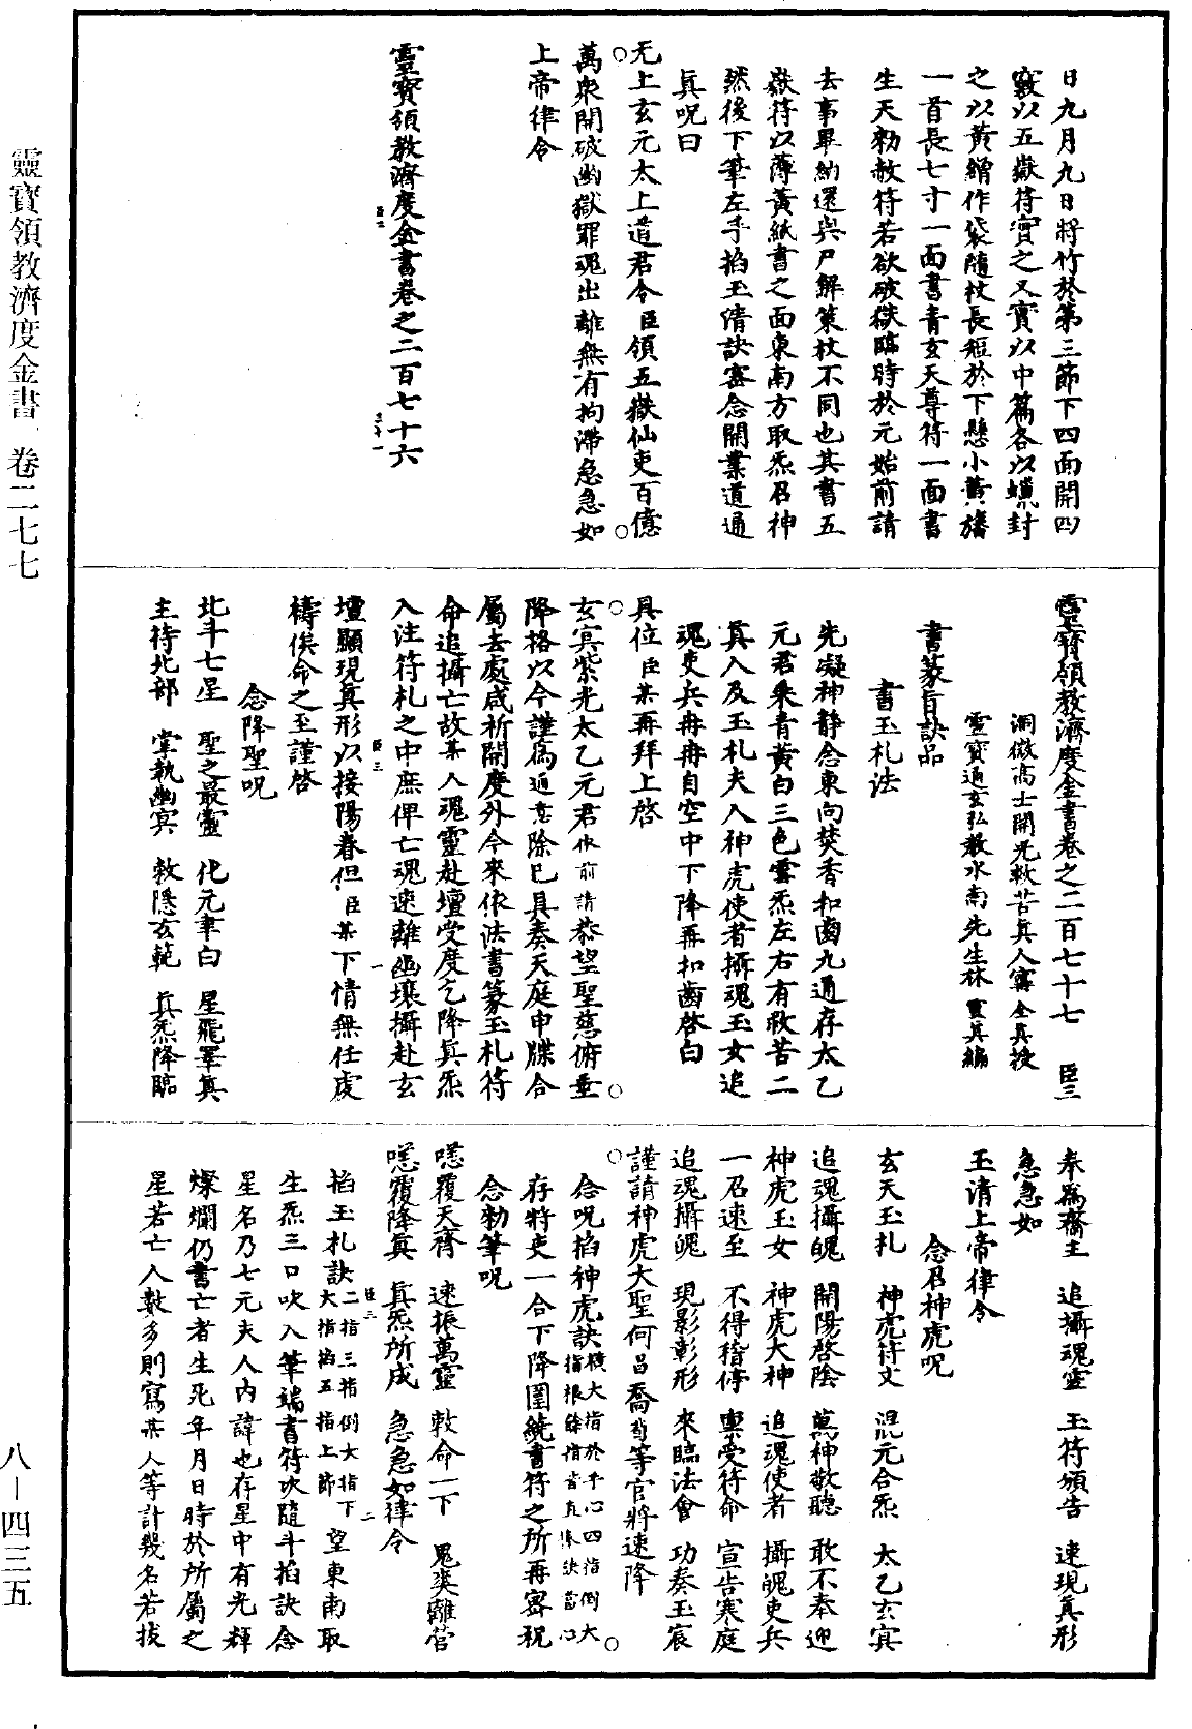 日九月九日將竹於第三節下四面開四
竅以五嶽符實之又實以中篇各以蠟封
之以黃繒作袋隨杖長短於下懸小黃旛
一首長七寸一面書青玄天尊符一面書
生天勑赦符若欲破獄臨時於元始前請
去事畢納還與尸解策杖不同也其書五
嶽符以薄黃紙書之面東南方取炁召神
然後下筆左手掐玉清訣密念開業道通
真呪曰
无上玄元太上道君令臣領五嶽仙吏百億
萬衆開破幽獄罪魂出離無有拘滯急急如
上帝律令
靈寶領教濟度金書卷之二百七十六
靈寶領教濟度金書卷之二百七十七　臣三
洞微高士開光救苦真人甯全真授
靈寶通玄弘教水南先生林靈真編
書篆旨訣品
書玉札法
先凝神靜念東向焚香扣齒九通存太乙
元君乘青黃白三色雲炁左右有救苦二
真人及玉札夫人神虎使者攝魂玉女追
魂吏兵冉冉自空中下降再扣齒啓白
具位臣某再拜上啓
玄冥紫光太乙元君依前請恭望聖慈俯垂
降格以今謹為通意除已具奏天庭申牒合
屬去處咸祈開度外今來依法書篆玉札符
命追攝亡故某人魂靈赴壇受度乞降真炁
入注符札之中庶俾亡魂速離幽壤攝赴玄
壇顯現真形以接陽春但臣某下情無任虔
禱俟命之至謹啓
念降聖呪
北斗七星　聖之最靈　化元聿白　星飛罩真
主持北部　掌執幽冥　敕隱玄範　真炁降臨
奉為齋主　追攝魂靈　玉符頒告　速現真形
急急如
玉清上帝律令
念召神虎呪
玄天玉札　神虎符文　混元合炁　太乙玄冥
追魂攝魄　開陽啓陰　萬神敬聽　敢不奉迎
神虎玉女　神虎大神　追魂使者　攝魄吏兵
一召速至　不得稽停　禀受符命　宣告寒庭
追魂攝魄　現影彰形　來臨法會　功奏玉宸
謹請神虎大聖何昌喬荀等官將速降
念呪掐神虎訣橫大指於手心四指倒大指根餘指皆直
存將吏一合下降圍繞書符之所再密祝
念勑筆呪
唵覆天齊　速振萬靈　敕命一下　鬼奕離營
唵覆降真　真炁所成　急急如律令
掐玉札訣二指三指倒大指下大指掐五指上節望東南取
生炁三口吹入筆端書符次隨斗掐訣念
星名乃七元夫人內諱也存星中有光輝
燦爛仍書亡者生死年月日時於所屬之
星若亡人數多則寫某人等計幾名若拔
靈寶領教濟度金書　卷二七七
八－四三五